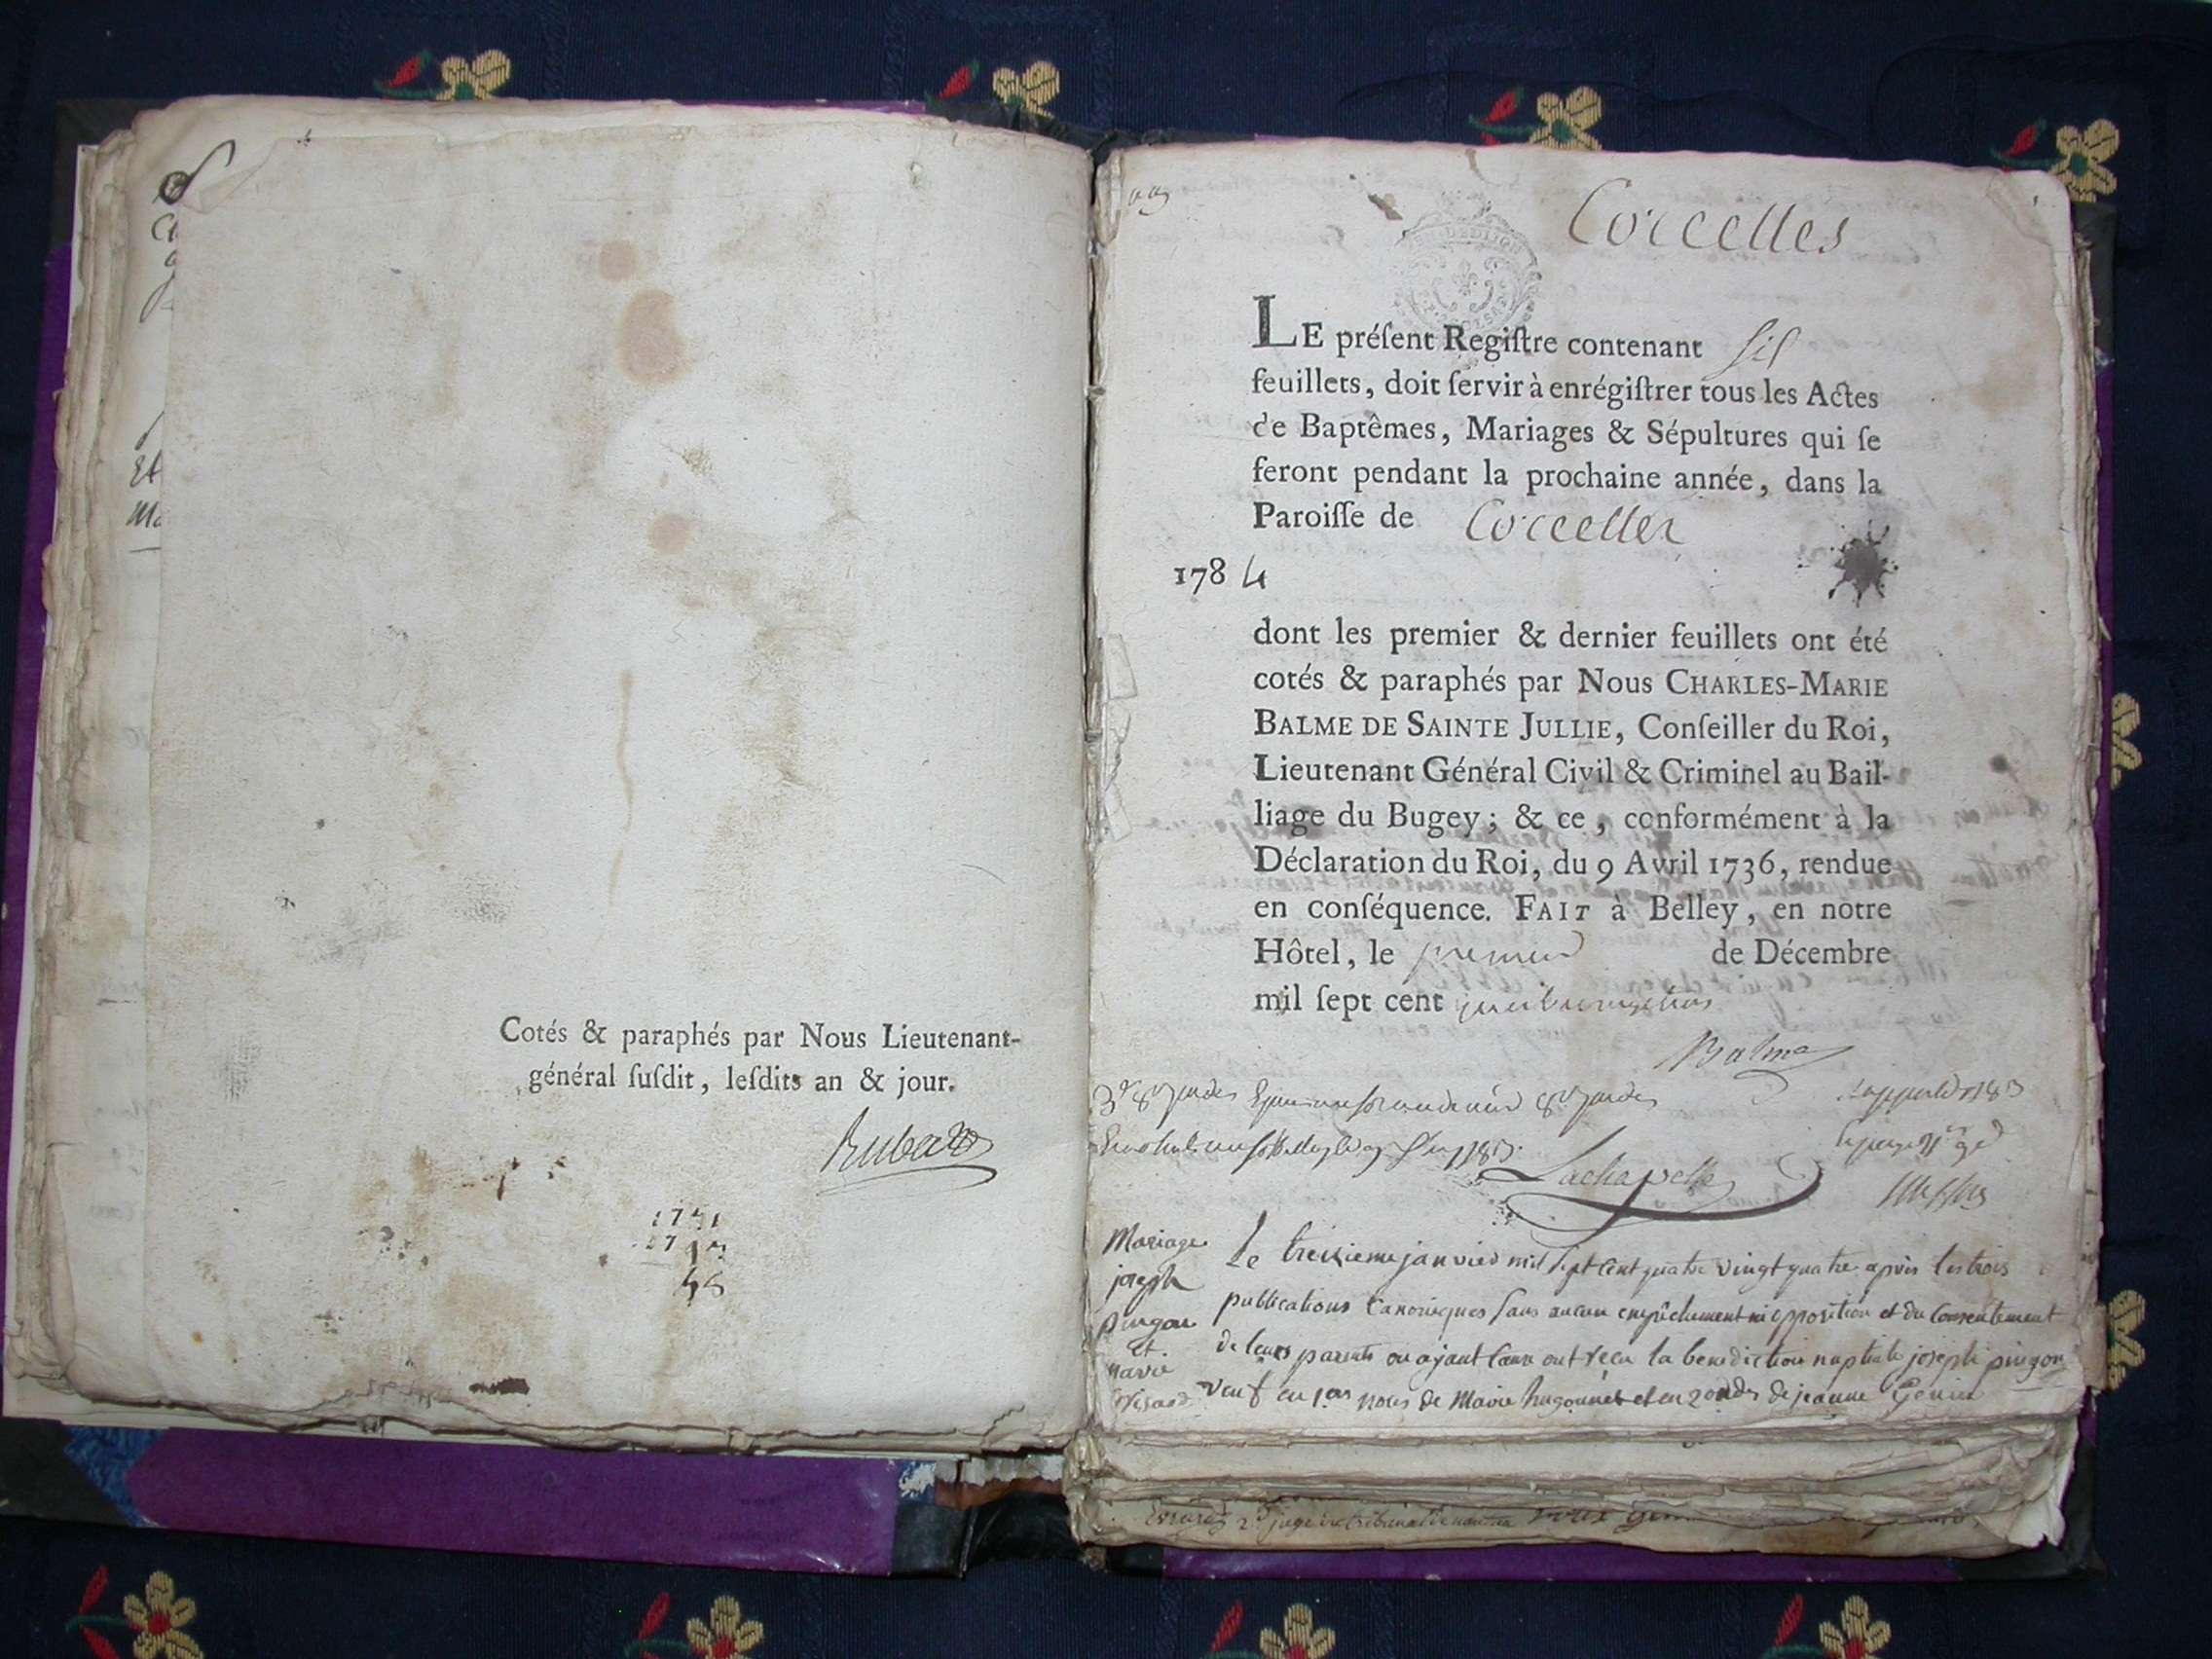 Cotés & paraphés par Nous Lieutenant-
général ſuſdit, leſdits an & jour.
Corcelles
LE préſent Regiſtre contenant six
feuillets, doit ſervir à enrégiſtrer tous les Actes
de Baptêmes, Mariages & Sépultures qui ſe
feront pendant la prochaine année, dans la
Paroiſſe de Corcelles
1784
dont les premier & dernier feuillets ont été
cotés & paraphés par Nous CHARLES-MARIE
BALME DE SAINTE JULLIE, Conſeiller du Roi,
Lieutenant Général Civil & Criminel au Bail-
liage du Bugey ; & ce , conformément à la
Déclaration du Roi, du 9 Avril 1736, rendue
en conſéquence. FAIT à Belley, en notre
Hôtel, le premier de Décembre
mil ſept cent
Balme
Lachapelle
Mariage
joseph
pingon
et
marie
Le treizieme janvier mil sept cent quatre vingt quatre apres les trois
publications canoniques sans aucun empêchement ni opposition et du consentement
de leurs parents ou ajant cause ont reçu la benediction nuptiale joseph pingon
veuf en 1eres noces de Marie hugonnet et en 2ondes de jeanne Genin